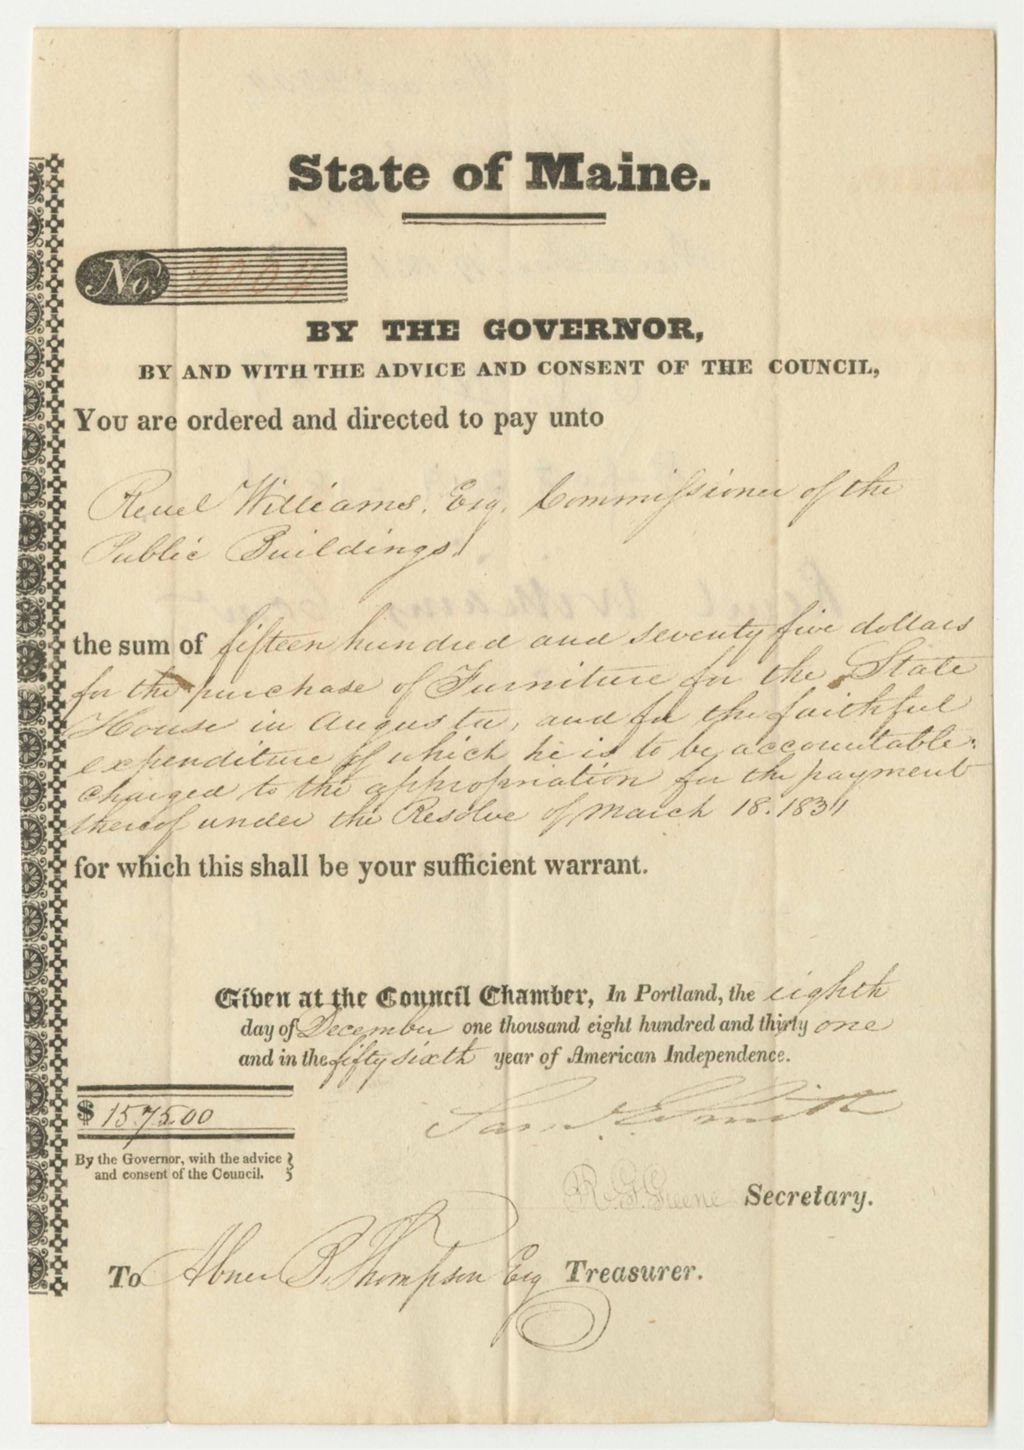 State of Maine.
No.
BY THE GOVERNOR,
BY AND WITH THE ADVICE AND CONSENT OF THE COUNCIL,
You are ordered and directed to pay unto
Reuel Williams, Esq. Commissioner of the
Public Buildings,
the sum of fifteen hundred and seventy five dollars
for the purchase of Furniture for the State
House in Augusta, and for the faithful
expenditure of which he is to be accountable:
charged to the appropriation for the payment
thereof under the Resolve of March 18. 1831
for which this shall be your sufficient warrant.
Given at the Council Chamber, In Portland, the eighth
day of December one thousand eight hundred and thirty one
and in the fifty sixth year of American Independence.
$ 1575.00
Sam. E. Smith
By the Governor, with the advice
and consent of the Council.
R. G. Greene Secretary.
To Abner B. Thompson Esq Treasurer.